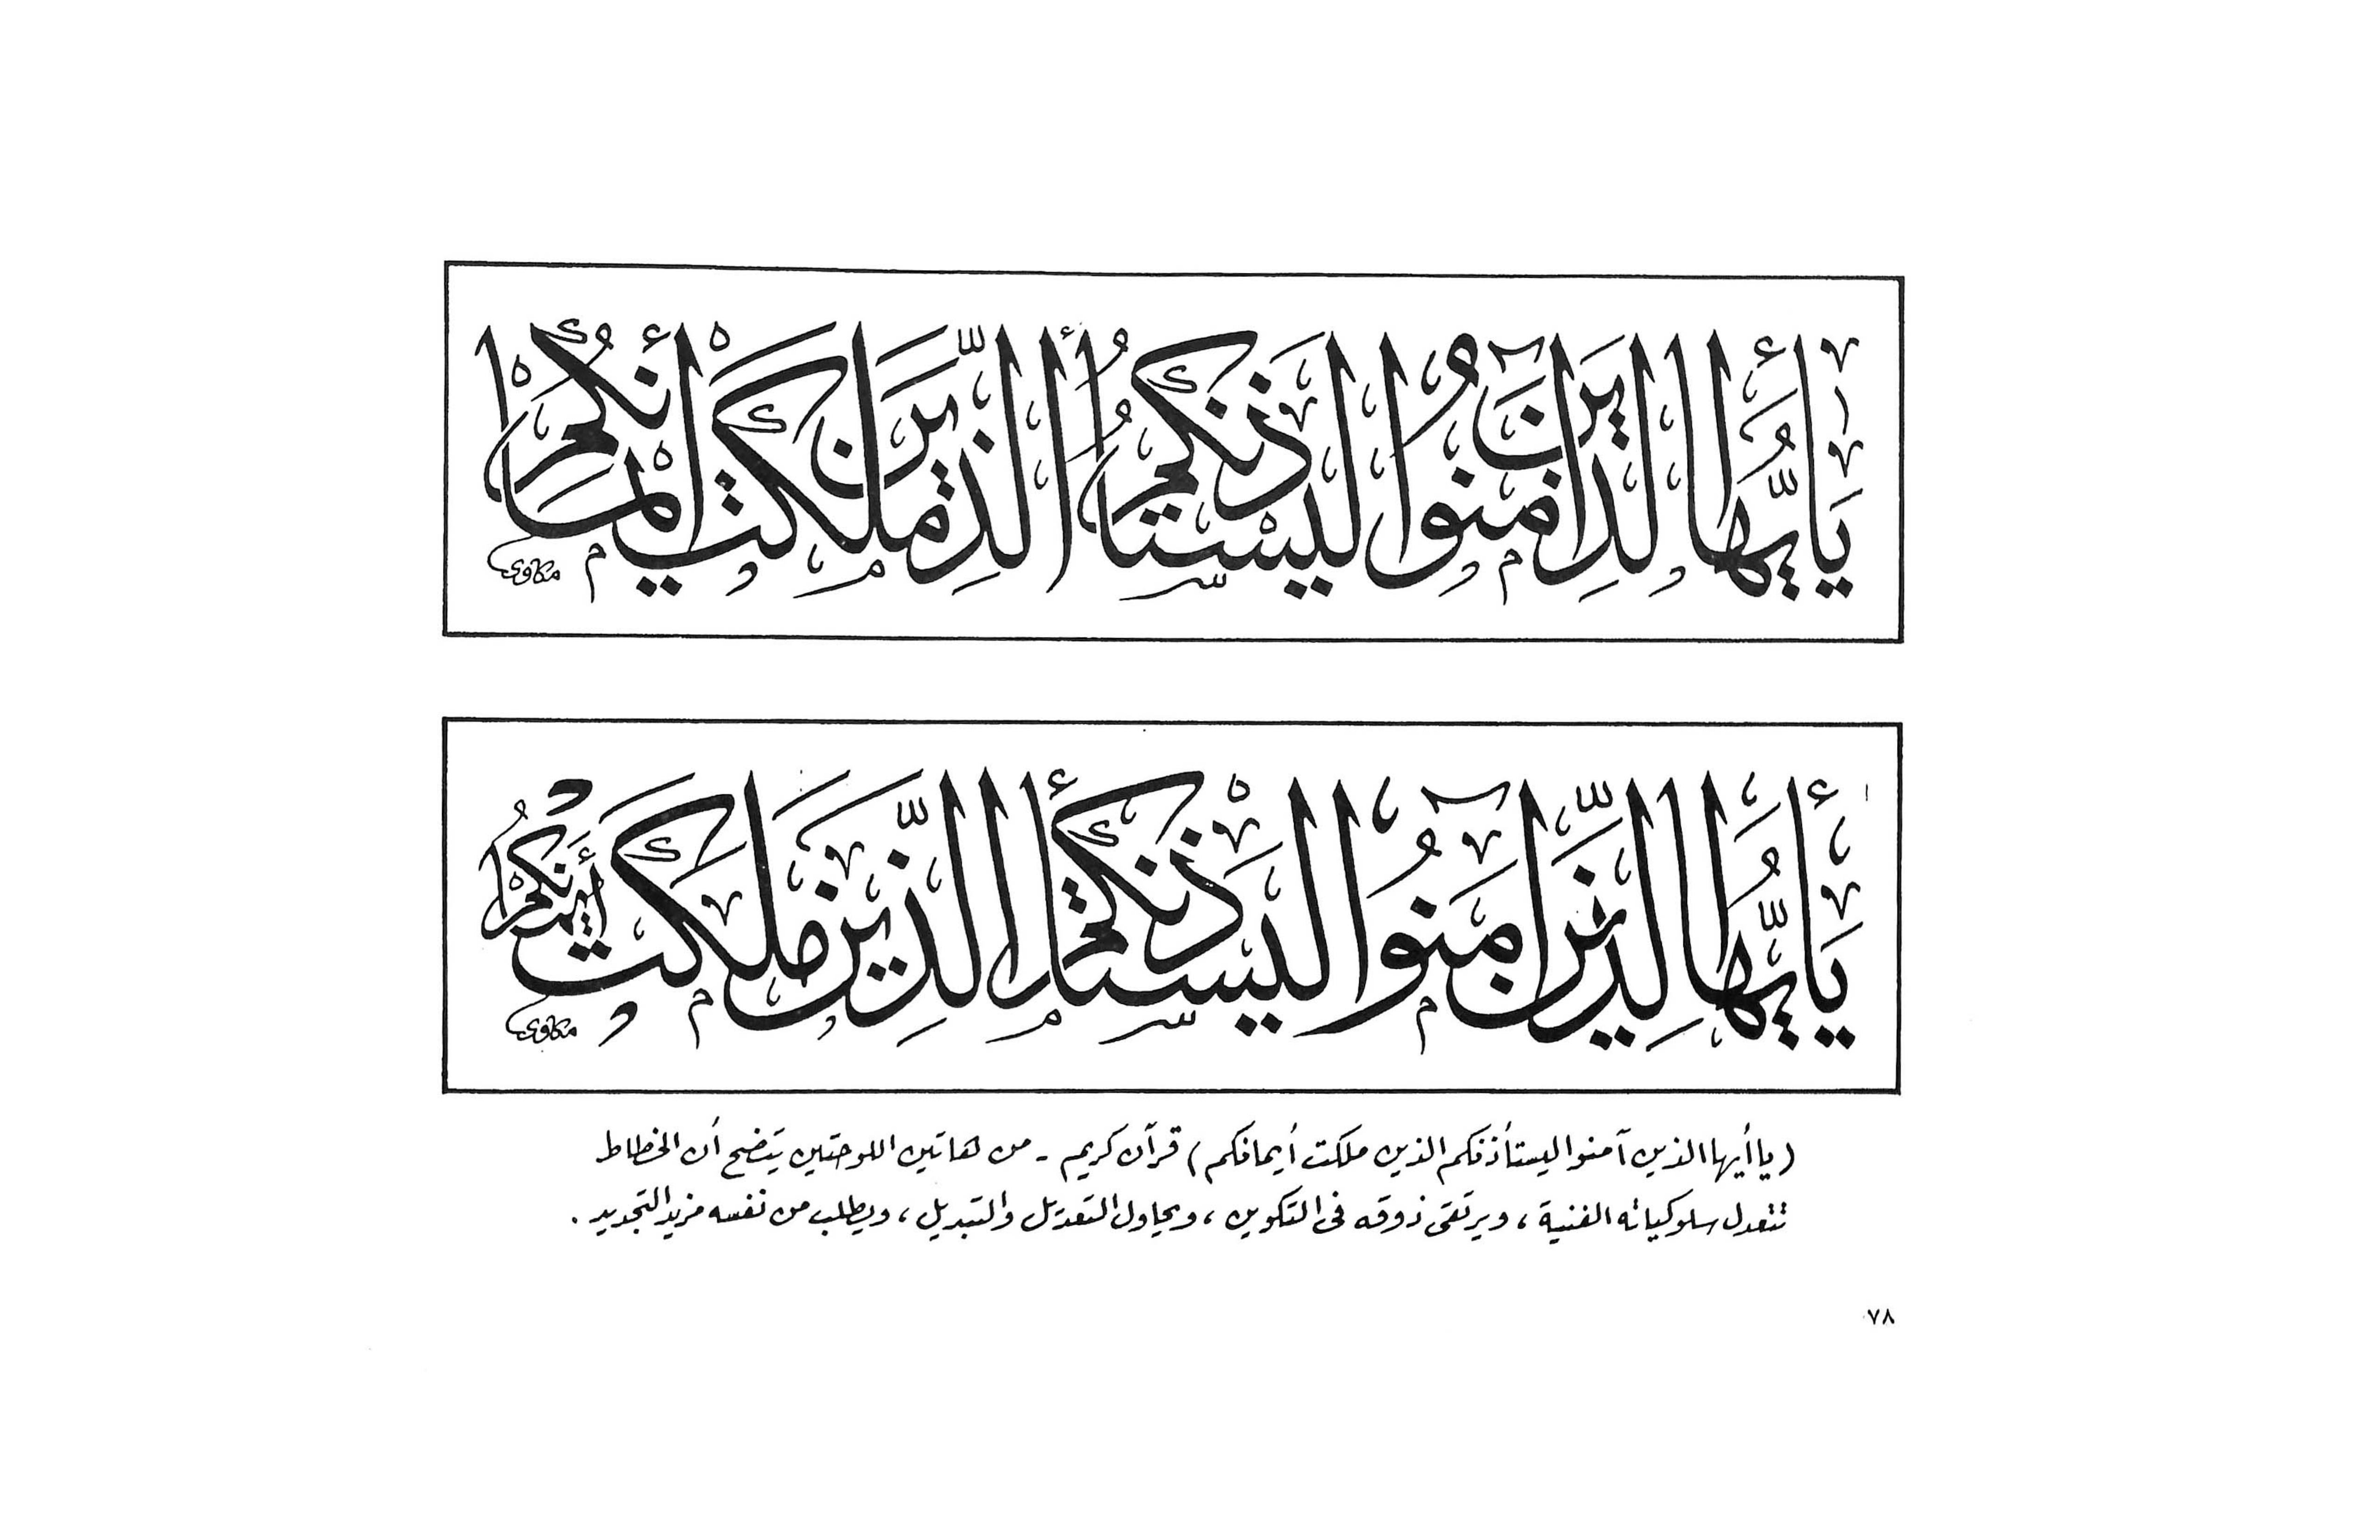 يا أيها الذين آمنوا ليستأذنكم الذين ملكت أيمانكم
مكاوي
يا أيها الذين آمنوا ليستأذنكم الذين ملكت أيمانكم
مكاوي
(يا أيها الذين آمنوا ليستأذنكم الذين ملكت أيمانكم) قرآن كريم - من هاتين اللوحتين يتضح أن الخطاط
تتعدل سلوكياته الفنية ، ويرتقى ذوقه فى التكوين ، ويحاول التعديل والتبديل ، ويطلب من نفسه مزيد التجديد .
٧٨